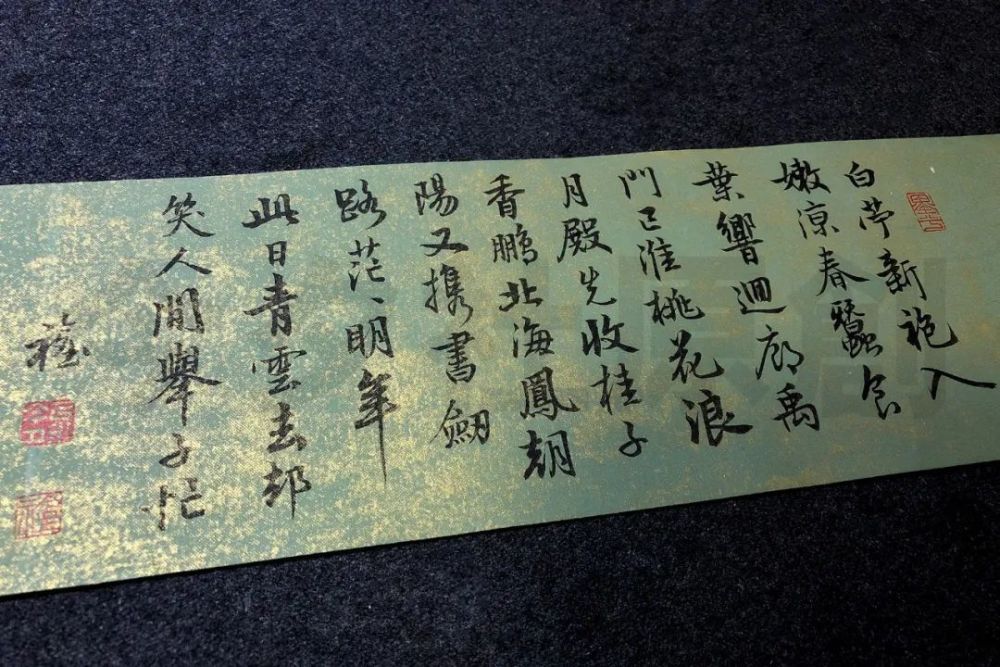 白苧新袍入
嫩涼春蠶食
葉響迴廊禹
門已准桃花浪
月殿先收桂子
香鵬北海鳳朝
陽又攜書劒
路茫〻明年
此日青雲去却
笑人間舉子忙